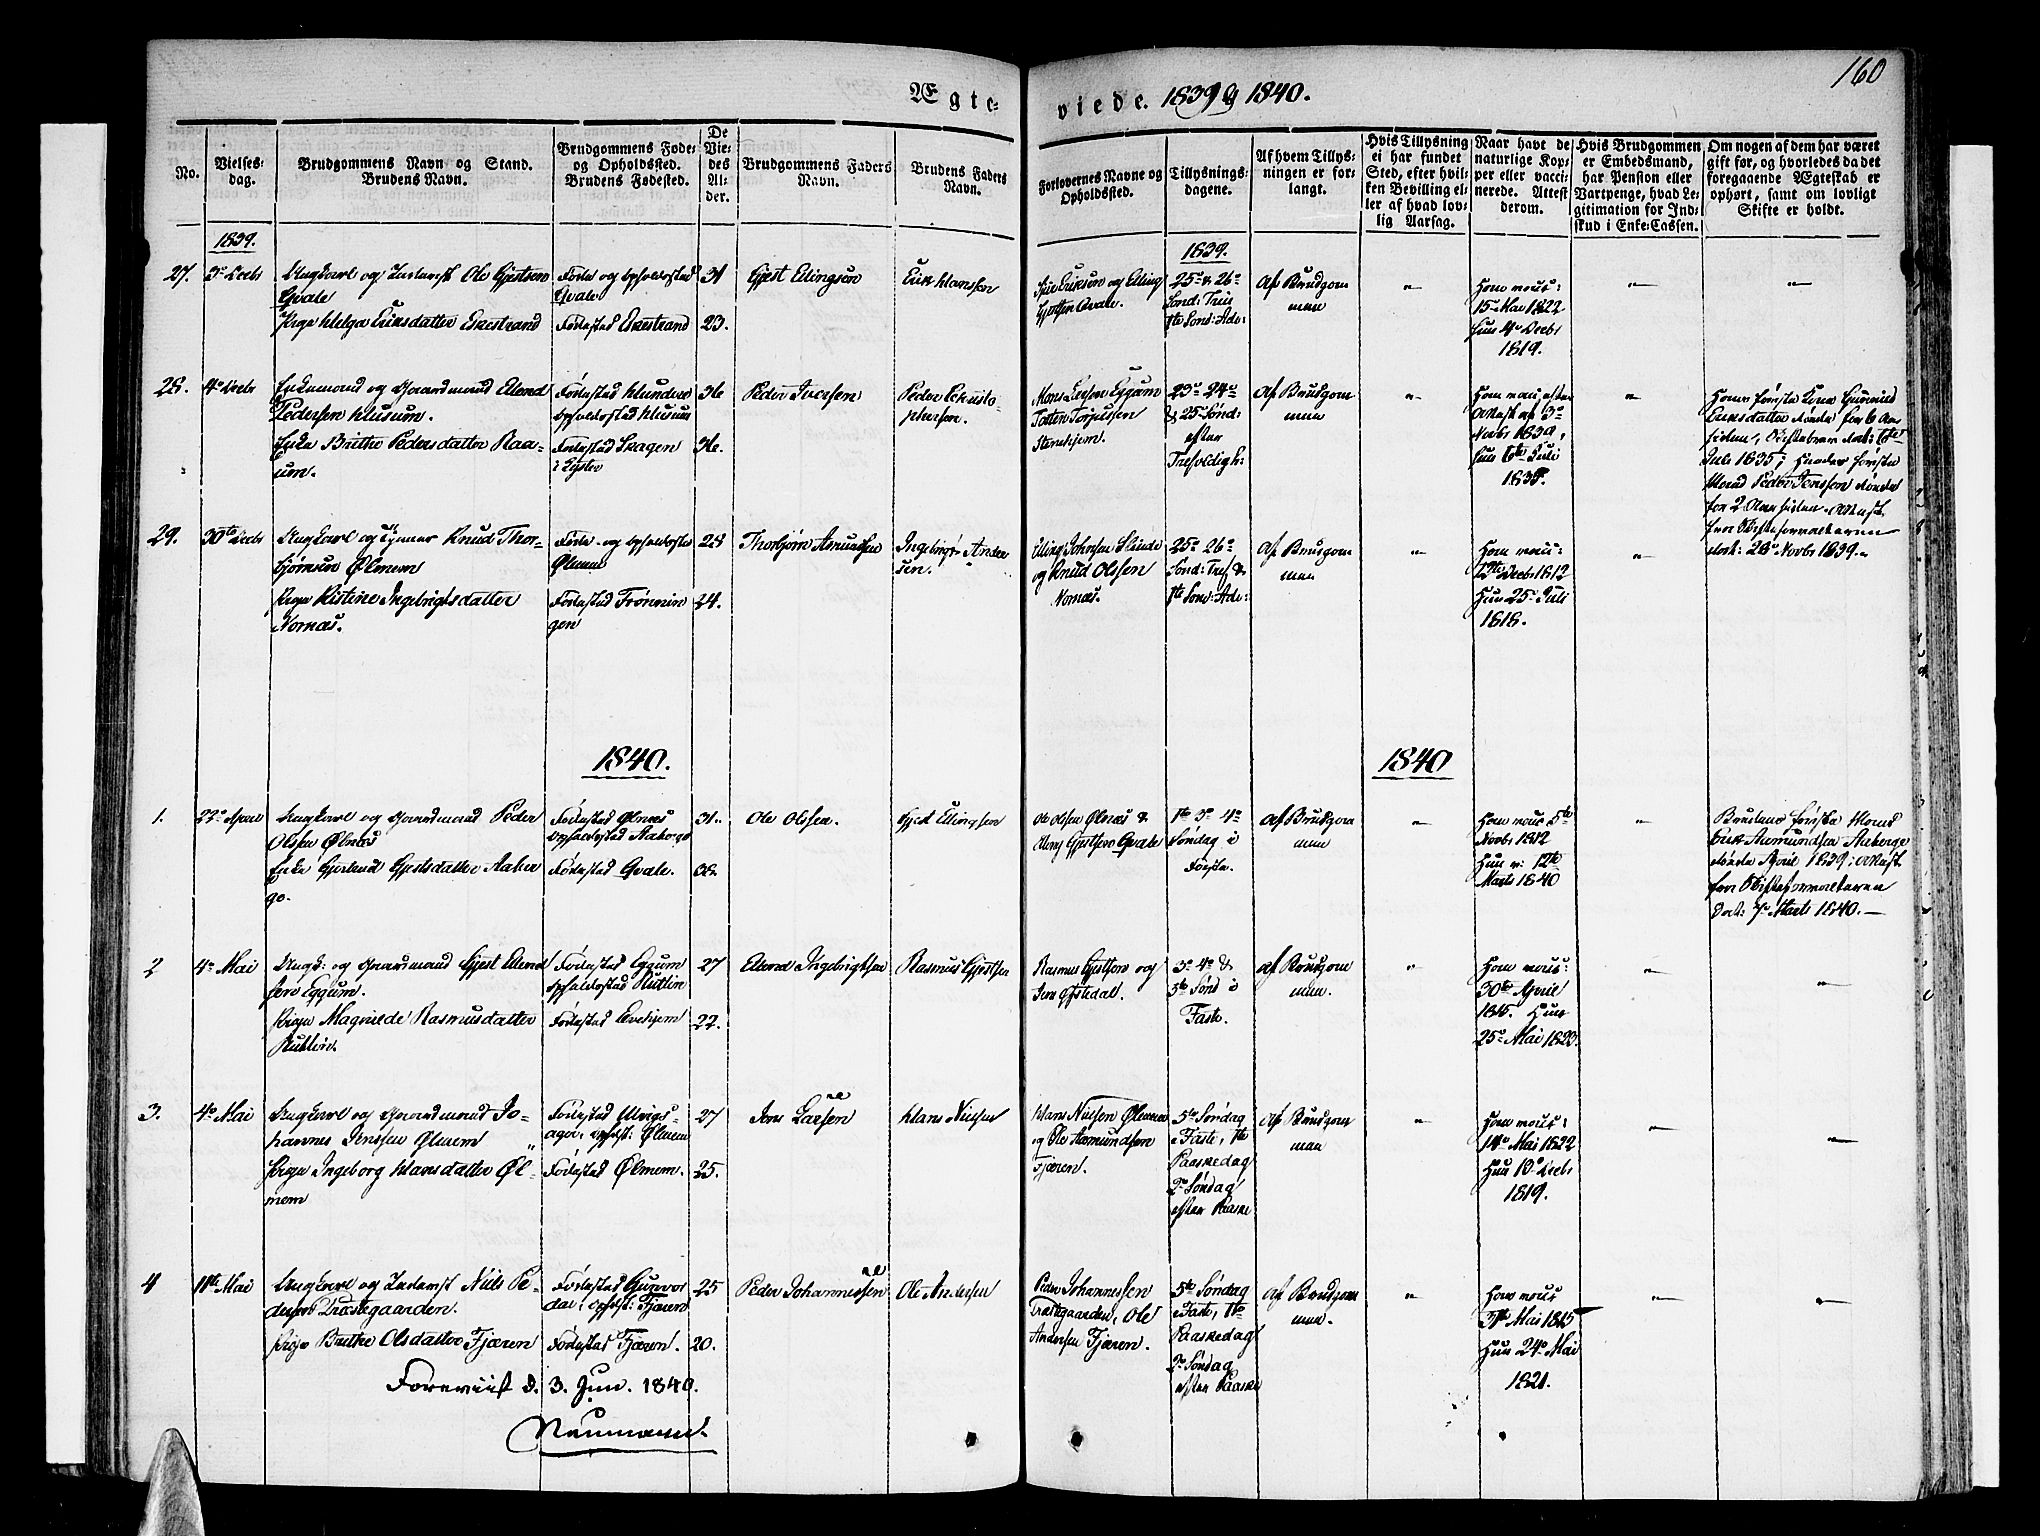 160
Ægte-
viede. 1839 & 1840.
No.
Vielses-
dag.
Brudgommens Navn og Stand.
Brudens Navn.
Brudgommens Føde-
og Opholdssted.
Brudens Fødested.
De
Vie-
des
Al-
der.
Brudgommens Faders
Navn.
Brudens Faders
Navn.
Forlovernes Navne og
Opholdssted.
Tillysnings-
dagene.
Af hvem Tillys-
ningen er for-
langt.
Hvis Tillysning
ei har fundet
Sted, efter hvil-
ken Bevilling el-
ler af hvad lov-
lig Aarsag.
Naar havt de
naturlige Kop-
per eller vacci-
nerede. Attest
derom.
Hvis Brudgommen
er Embedsmand,
har Pension eller
Vartpenge, hvad Le-
gitimation for Ind-
skud i Enke-Cassen.
Om nogen af dem har været
gift før, og hvorledes da det
foregaaende Ægteskab er
ophørt, samt om lovligt
Skifte er holdt.
1839.
1839.
27.
Ungkarl og Inderst Ole Gjestsen
Qvale
Pige Helga Eriksdatter Eikestrand
Føde og opholdssted
Qvale
Fødested Eikestrand
31
23.
Gjest Ellingsen
Erik Hanssen
Erikson og Elling
Gjestsen Qvale.
25de & 26de
Sønd: Trin
1ste Sønd: Adv:
Af Brudgom
men
"
Ham
15de Mai 1822
Hun 4de Decbr
1819.
"
"
28.
4de Decbr
Enkemand og Gaardmand Ellend
Pedersen Husum.
Enke Brithe Pedersdatter Raa-
um.
Fødested
opholdssted Husum
Fødested Skagen
i Lyster
36
36.
Peder Iversen
Peder Christo-
phersen.
Mons Eggum
Torjussen
Stenehjem.
23de 24de
& 25de Sønd:
efter
Trefoldigh:
Af Brudgom
men
"
efter
Attest af 3de
Novbr 1839,
Hun 6te Juli
1835.
"
Hans første Kone Gunnild
Eriksdatter døde for 6 Aar
siden, Skiftebrev dat: 6te
Juli 1835; Hendes første
Mand Peder Jenssen døde
for 2 Aar siden. Attest
fra Skifteforvalteren
dat: 28de Novbr 1839.
29.
30te Decbr
Ungkarl og Knud Thor-
bjørnsen Ølmem
Pige Kistine Ingebrigtsdatter
Nornæs.
Føde- og opholdssted
Ølmem
Fødested Frønnin
gen
28
24.
Thorbjørn Asmundsen
Ingebrigt Ander
sen.
Elling Johnsen Slinde
og Knud Olssen
Nornæs.
25de 26de
Sønd: Tref &
1ste Sønd: Adv:
Af Brudgom
men
"
12te Decbr 1812
Hun 25de Juli
1818.
"
1840.
1840
1.
22de April
Ungkarl og Gaardmand Peder
Olsen Ølnæs
Enke Gjertrud Gjestsdatter Aaber
ge.
Fødested Ølnæs
opholdssted Aaberge
Fødested Qvale.
31.
38.
Ole Olsen.
Gjest Ellingsen
Ole Olsen Ølnæs &
Elling Gjestsen Qvale
1ste 3de 4de
Søndag i
Faste.
Af Brudgom
men
"
5te
Novbr 1812
Hun 12te
Marts 1840
"
Brudens første Mand
Erik Aamundsen Aaberge
døde April 1839; Attest
fra Skifteforvalteren
Dat: 7de Marts 1840.
2
4de Mai
Ungk: og Gaardmand Gjest Ellend
sen Eggum.
Pige Magnilde Rasmusdatter
Rutlin.
Fødested Eggum
opholdssted Rutlin
Fødested Evehjem
27
22.
Ellend Ingebrigtsen
Rasmus Gjestsen
Rasmus Gjestsen og
Jens Gjestedal.
3de 4de &
5te Sønd i
Faste.
Af Brudgom
men.
"
30te April
1815. Hun
25de Mai 1820.
"
"
3.
4de Mai
Ungkarl og Gaardmand Jo-
hannes Jenssen Ølmem
Pige Ingeborg Hansdatter Øl-
mem
Fødested Ulvigs-
ager, opholdst: Ølmem
Fødested Ølmem.
27
25.
Jens Larsen
Hans Nielsen
Hans Nielsen Ølmem
og Ole Aamundsen
Fjæren.
5te Søndag
i Faste, 1ste
Paaskedag
2de Søndag
efter Paaske
Af Brudgom
men
"
14de Mai 1822
Hun 18de Decbr
1819.
"
"
4
11te Mai
Ungkarl og Inderst Niels Pe-
dersen Præstegaarden.
Pige Brithe Olsdatter Fjæren
Fødested Gunvor
dal, opholdst: Fjæren
Fødested Fjæren.
25
20.
Peder Johannessen
Ole Andersen
Peder Johannessen
Præstegaarden, Ole
Andersen Fjæren.
5te Søndag
i Faste, 1ste
Paaskedag
2de Søndag
efter Paaske
Af Brudgom
men.
"
Mai 1815
Hun 24de Mai
1821.
"
"
Foreviist d. 3. Jun. 1840.
Neumann.